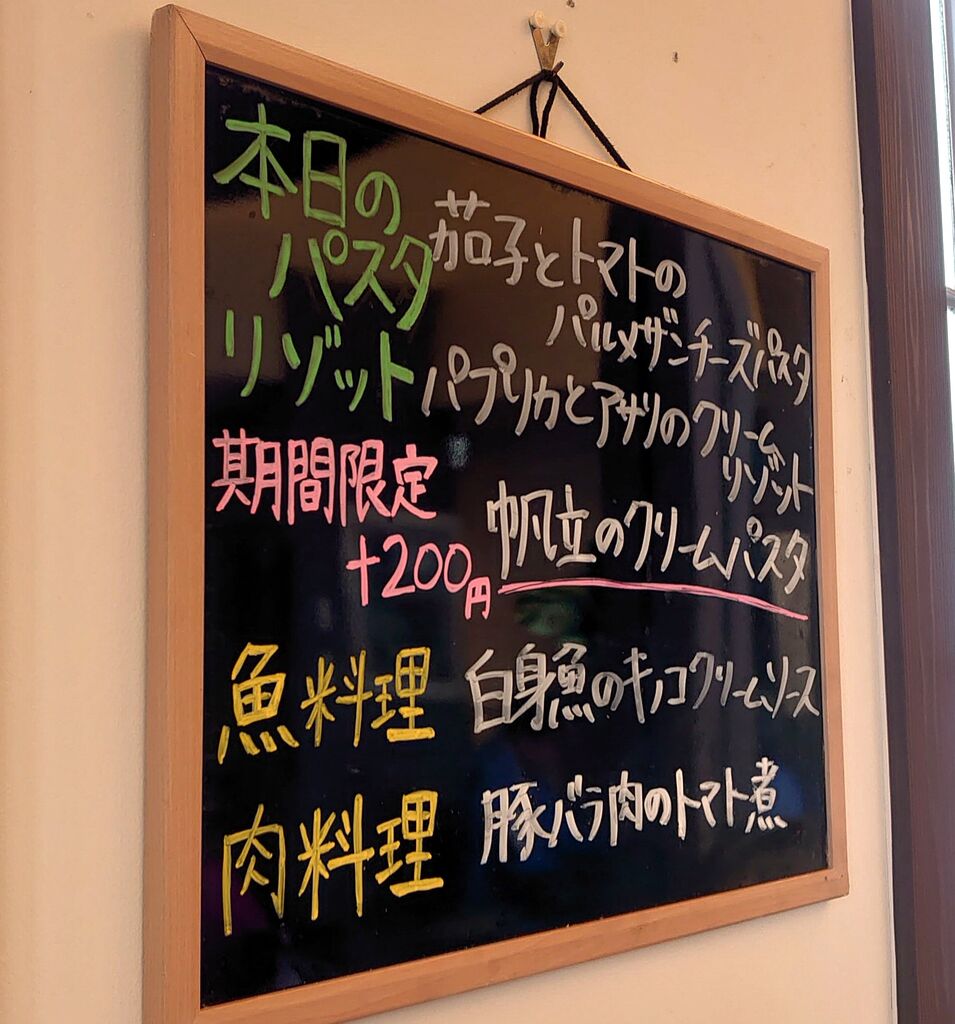 本日の
パスタ
リゾット
茄子とトマトの
パルメザンチーズパスタ
パプリカとアサリのクリーム
リゾット
期間限定
+200円
帆立のクリームパスタ
魚料理
白身魚のキノコクリームソース
肉料理
豚バラ肉のトマト煮